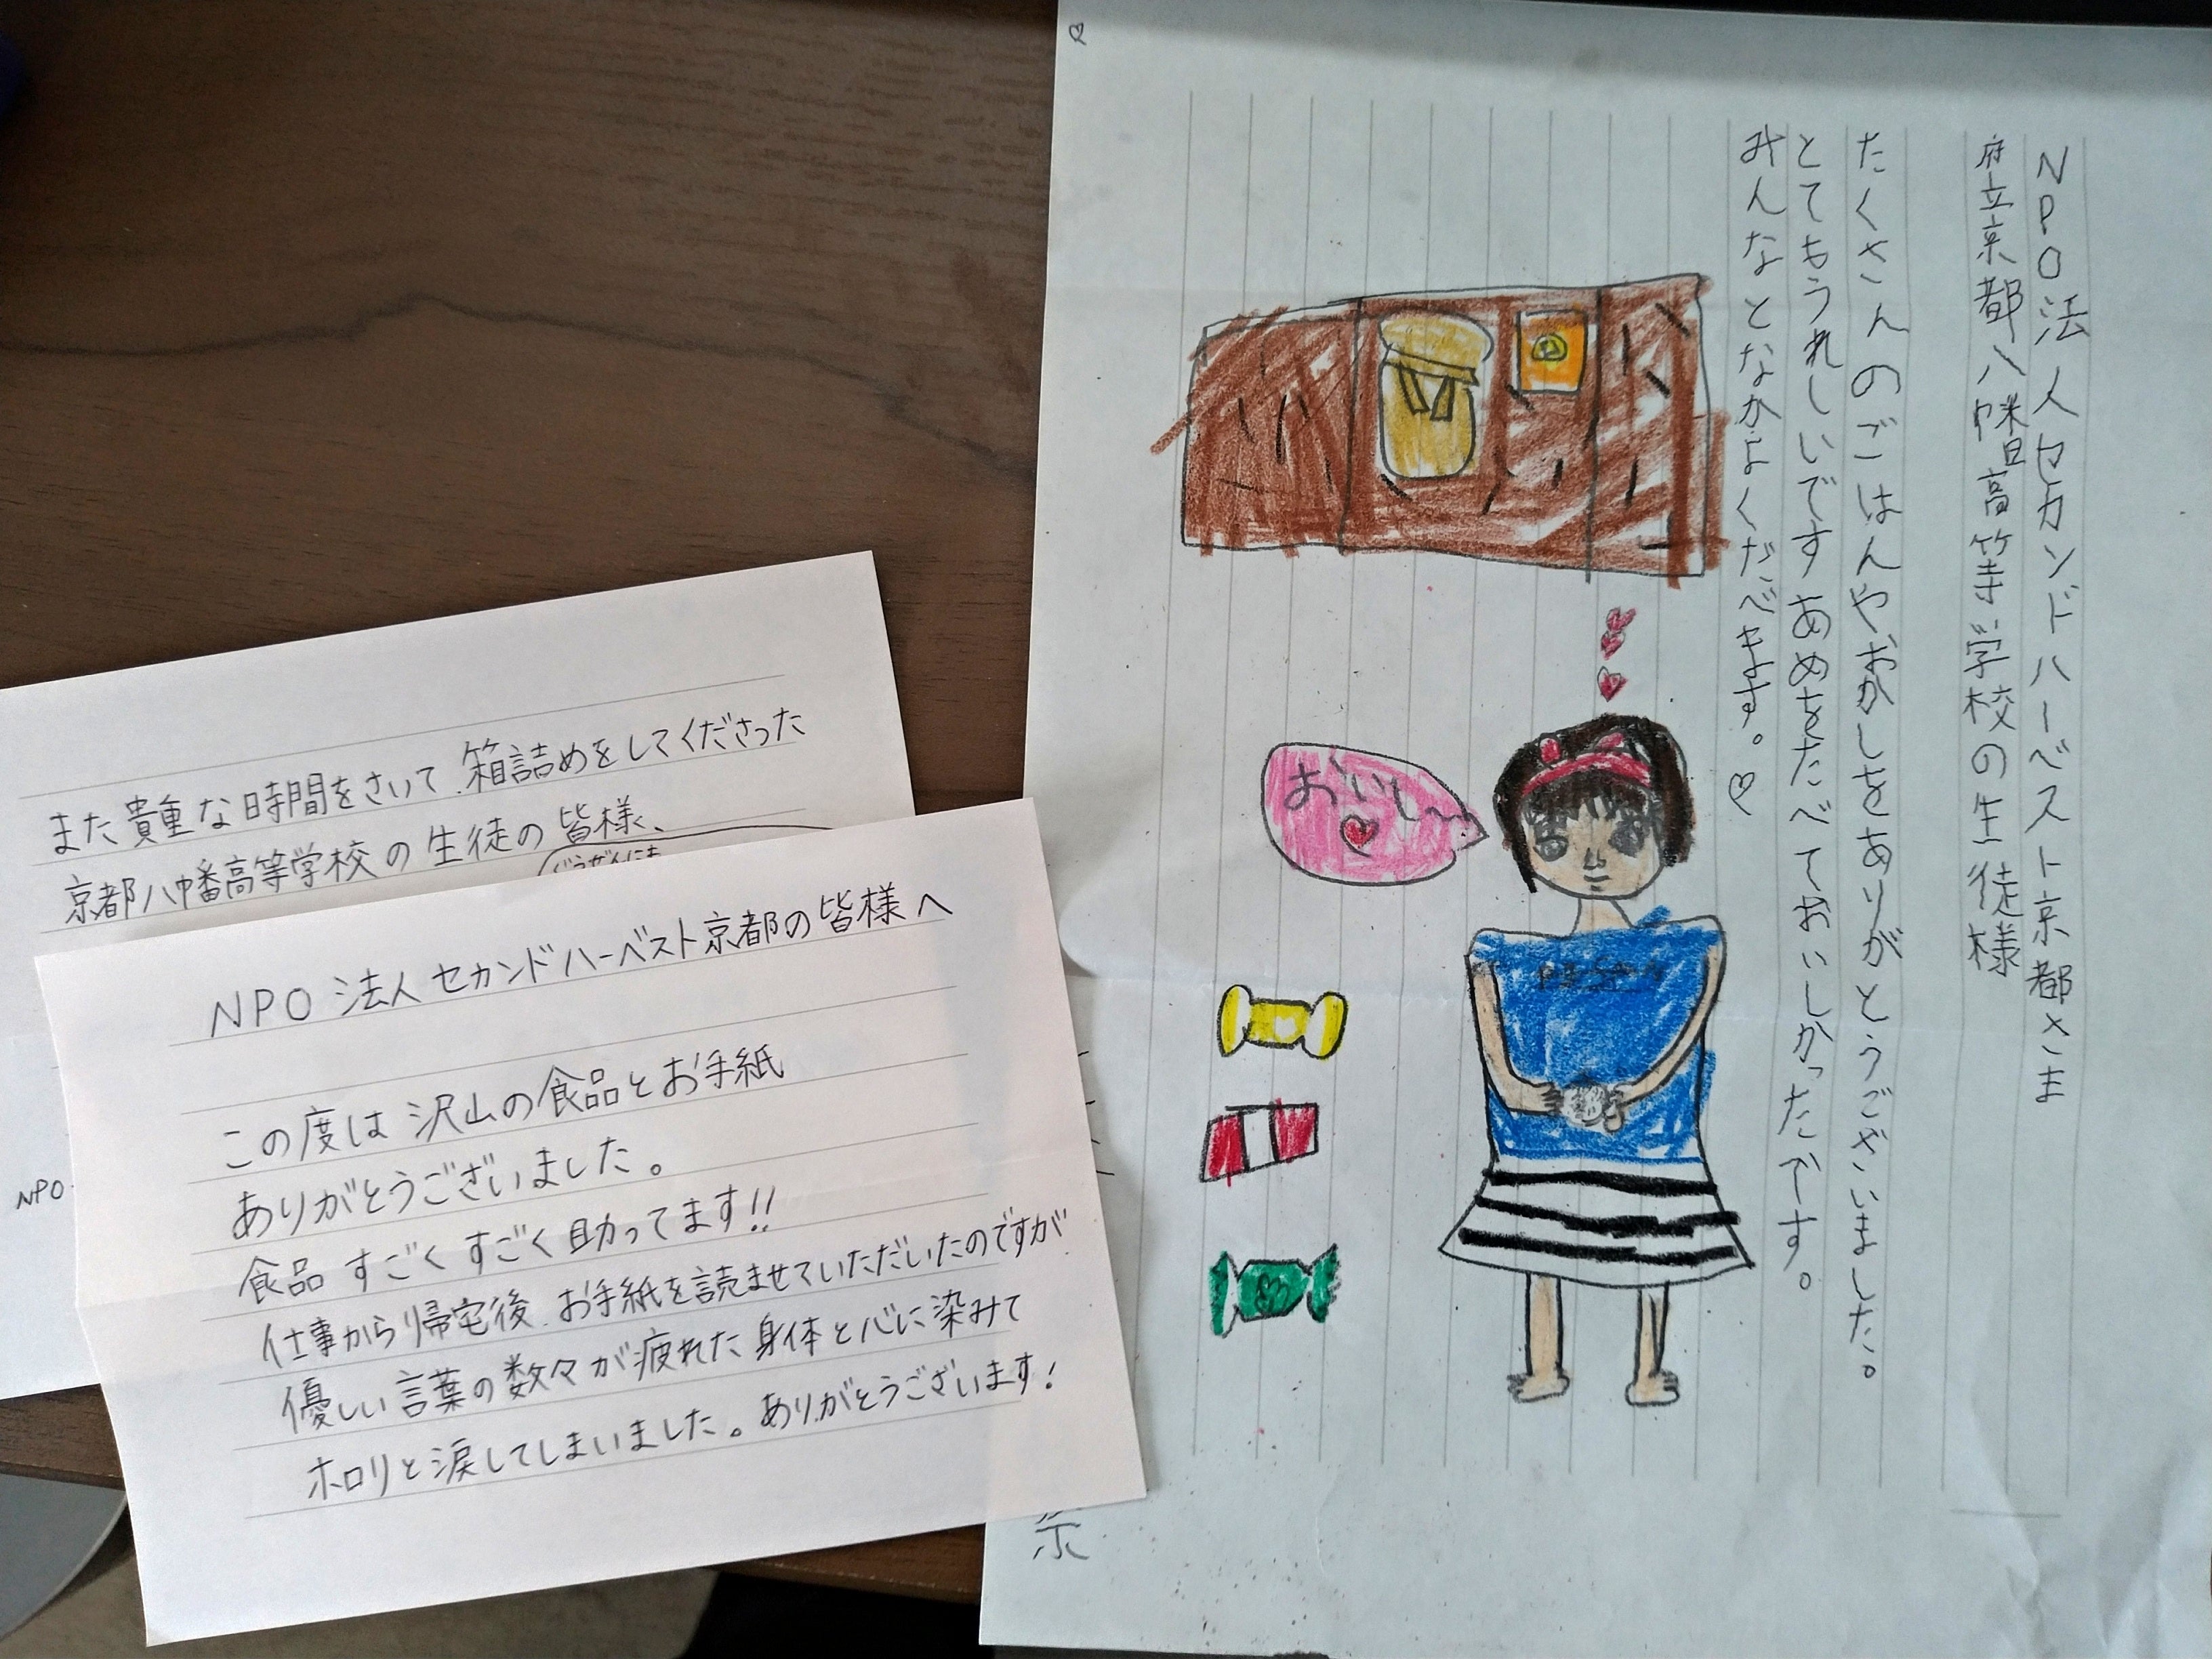 また貴重な時間をさいて、箱詰めをしてくださった
京都八幡高等学校の生徒の皆様、
NPO
NPO法人セカンドハーベスト京都の皆様へ
この度は沢山の食品とお手紙
ありがとうございました。
食品すごくすごく助ってます!!
仕事から帰宅後、お手紙を読ませていただいたのですが
優しい言葉の数々が疲れた身体と心に染みて
ホロリと涙してしまいました。ありがとうございます!
NPO法人セカンドハーベスト京都さま
府立京都八幡高等学校の生徒様
たくさんのごはんやおかしをありがとうございました。
とてもうれしいですあめをたべておいしかったです。
みんなとなかよくたべます。♡
おいし〜